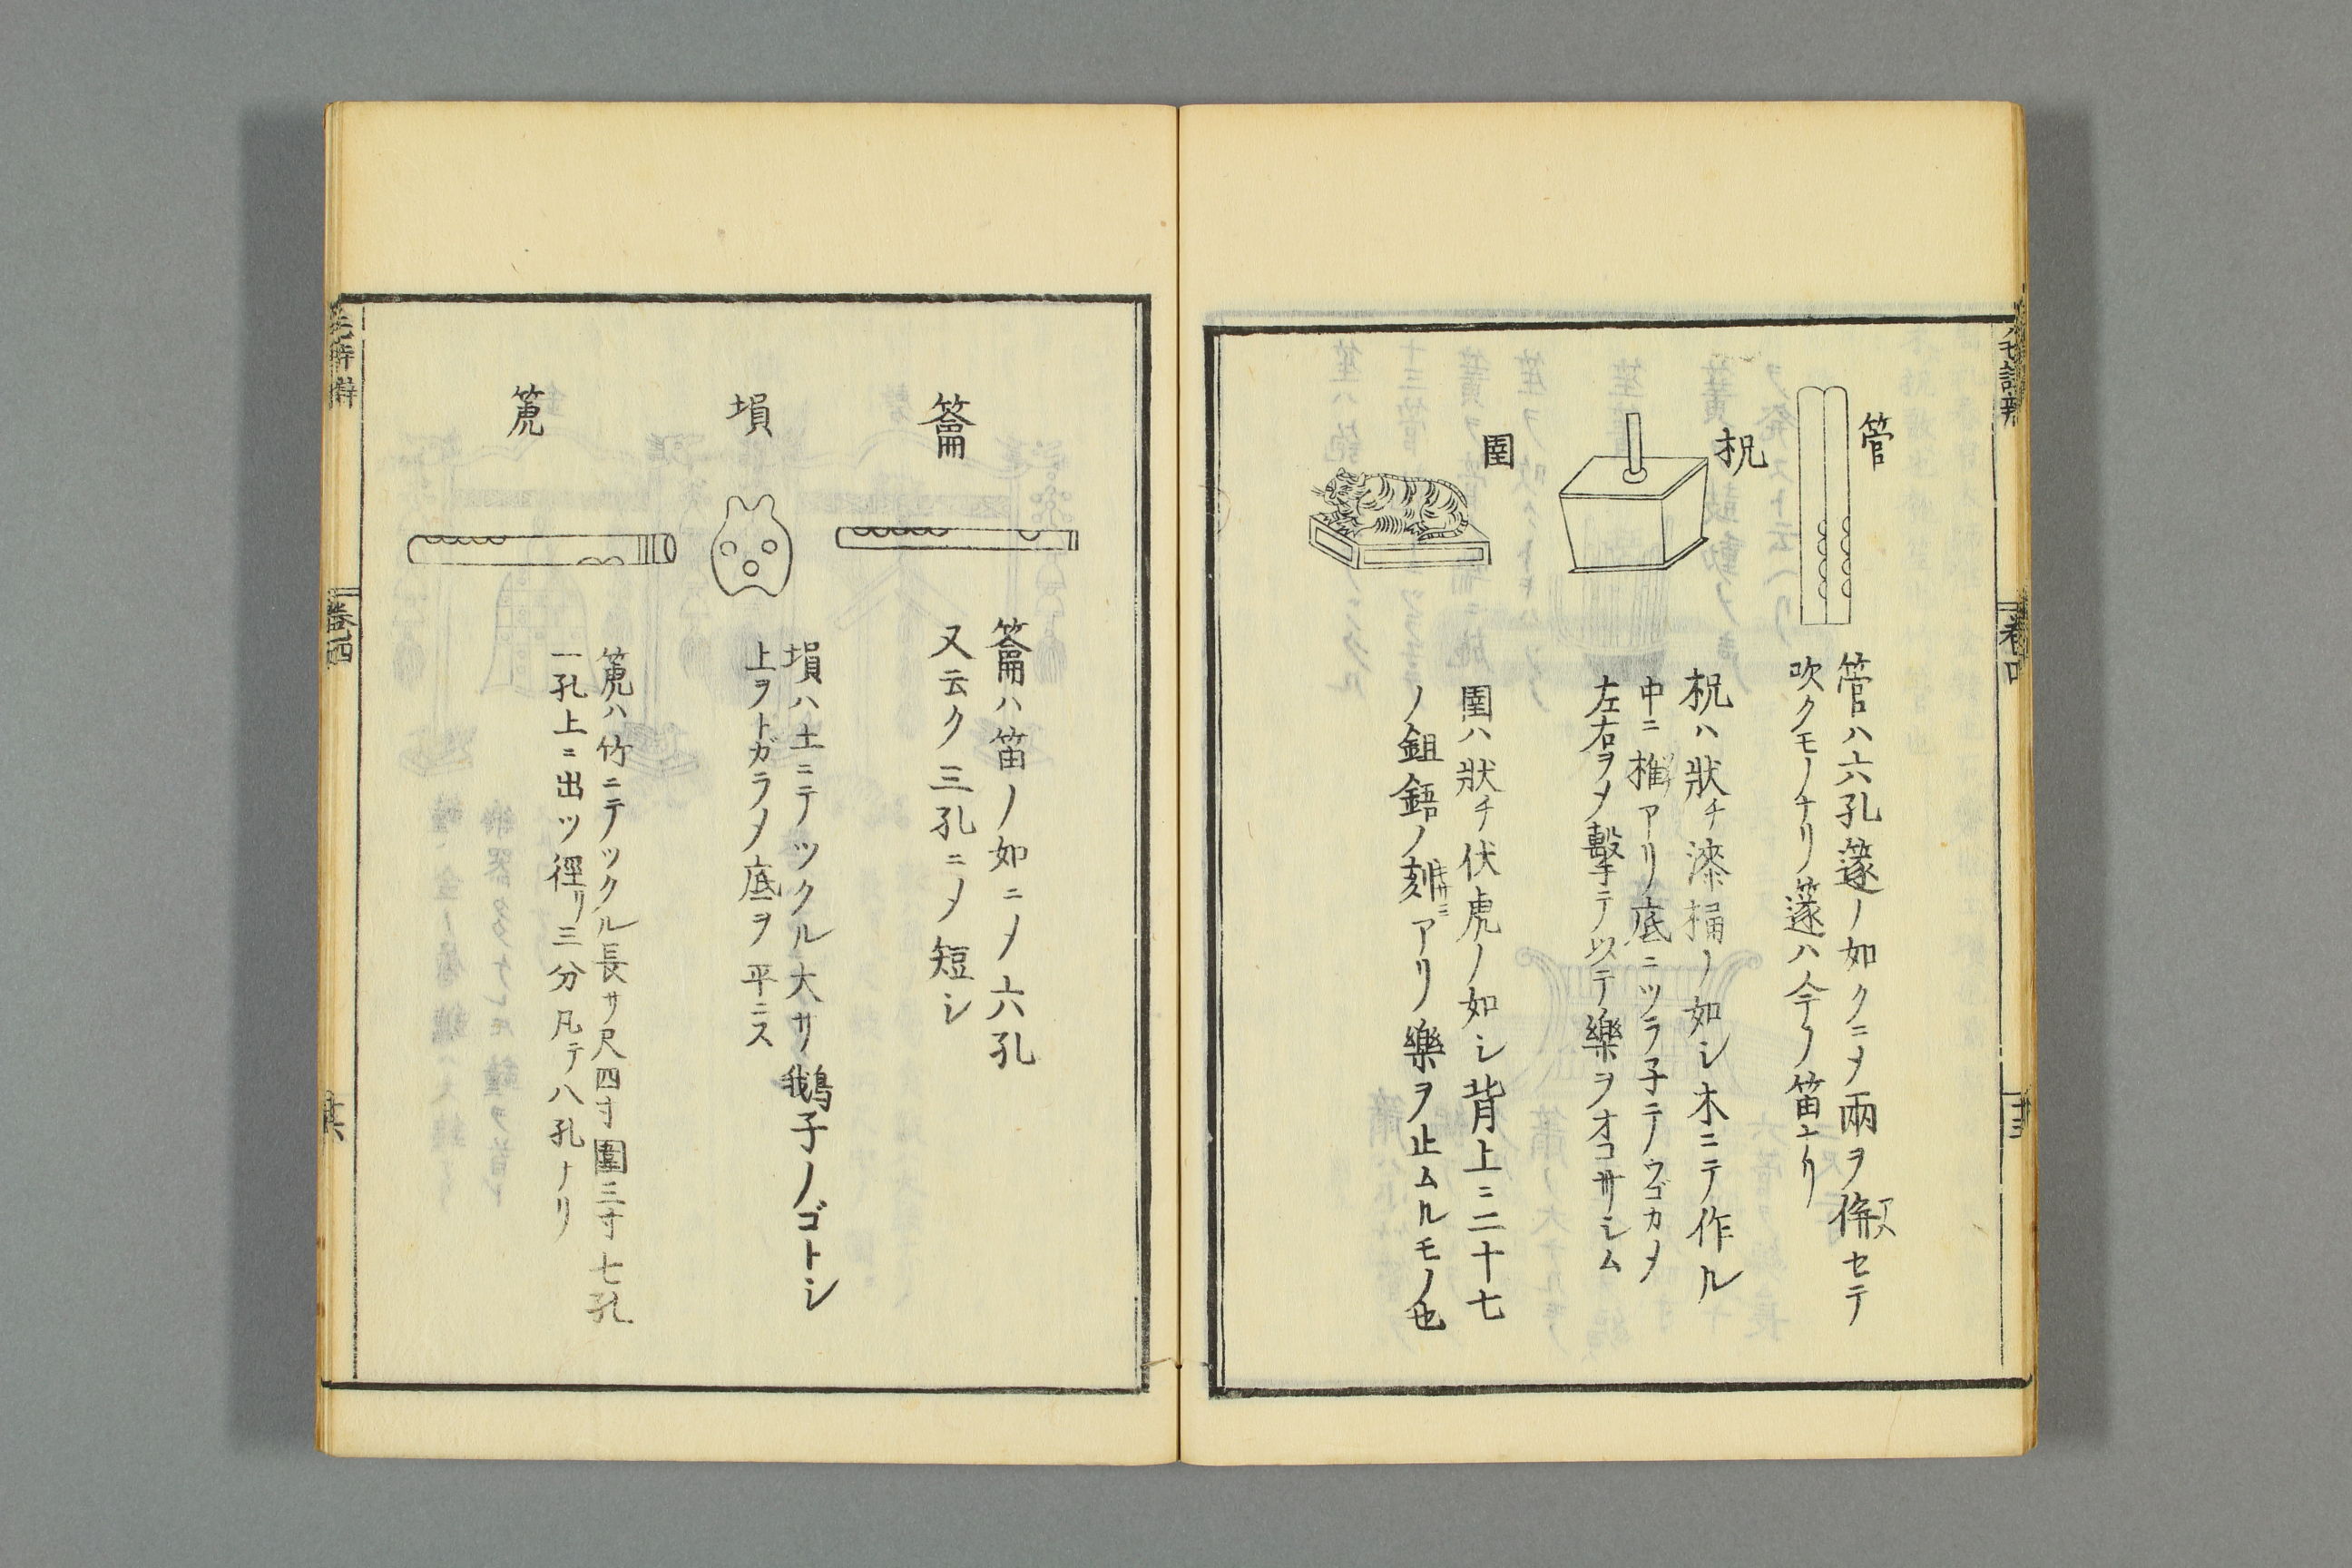 管
管ハ六孔篴ノ如クニメ兩ヲ倂セテ
吹クモノナリ篴ハ今ノ笛ナリ
柷
柷ハ狀チ漆桶ノ如シ木ニテ作ル
中ニ椎アリ底ニツラ子テウゴカメ
左右ヲメ擊テ以テ樂ヲオコサシム
圉
圉ハ狀チ伏虎ノ如シ背上ニ二十七
ノ鉏鋙ノ刻アリ樂ヲ止ムルモノ也
籥
籥ハ笛ノ如ニメ六孔
又云ク三孔ニメ短シ
塤
塤ハ土ニテツクル大サ鵝子ノゴトシ
上ヲトガラメ底ヲ平ニス
箎
箎ハ竹ニテツクル長サ尺四寸圍三寸七孔
一孔上ニ出ツ徑リ三分凡テ八孔ナリ
卷四